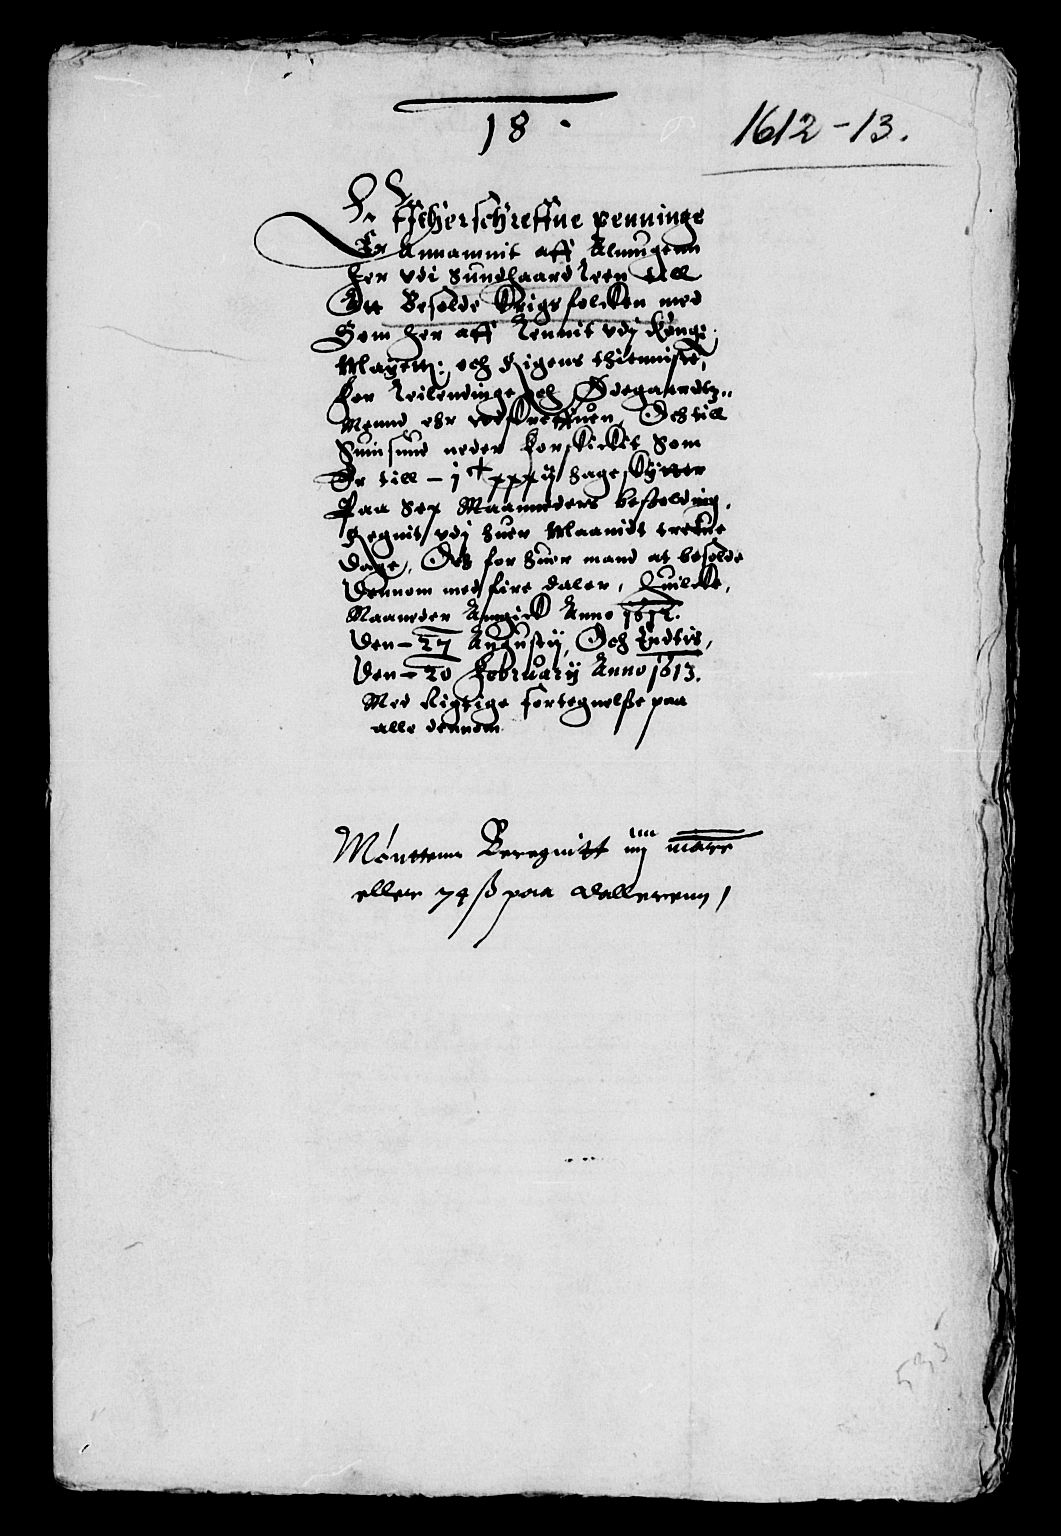 18.
1612-13.
Effterschreffne penninge
Er Annammit aff Almugenn
her vdi Sundhaard Leen till
Att Besolde Krigsfolcken med
Som her aff Lennit vdj Kong:
Mayett: och Rigens thienniste,
for Leilendinge och Ødegaardtz-
Mennd ehr vdskreffuen, Och till
Summsund neder forskickit Som
Er till - j c xxxij Hageskytter
Paa Sex Maanneders besolding,
Regnit vdj huer Maanidt tretiue
Dage, Och for huer mand at besolde
Dennom med fire daler, Huilcke,
Maaneder Angick Anno 1612.
Den - 27 Augustij, Och Endtis,
Den - 20 Februarij Anno 1613.
Med Rigtige fortegnelsse paa
alle dennom
Mønttenn Beregnitt iiij marc
eller 74 ß paa dallerenn,
533